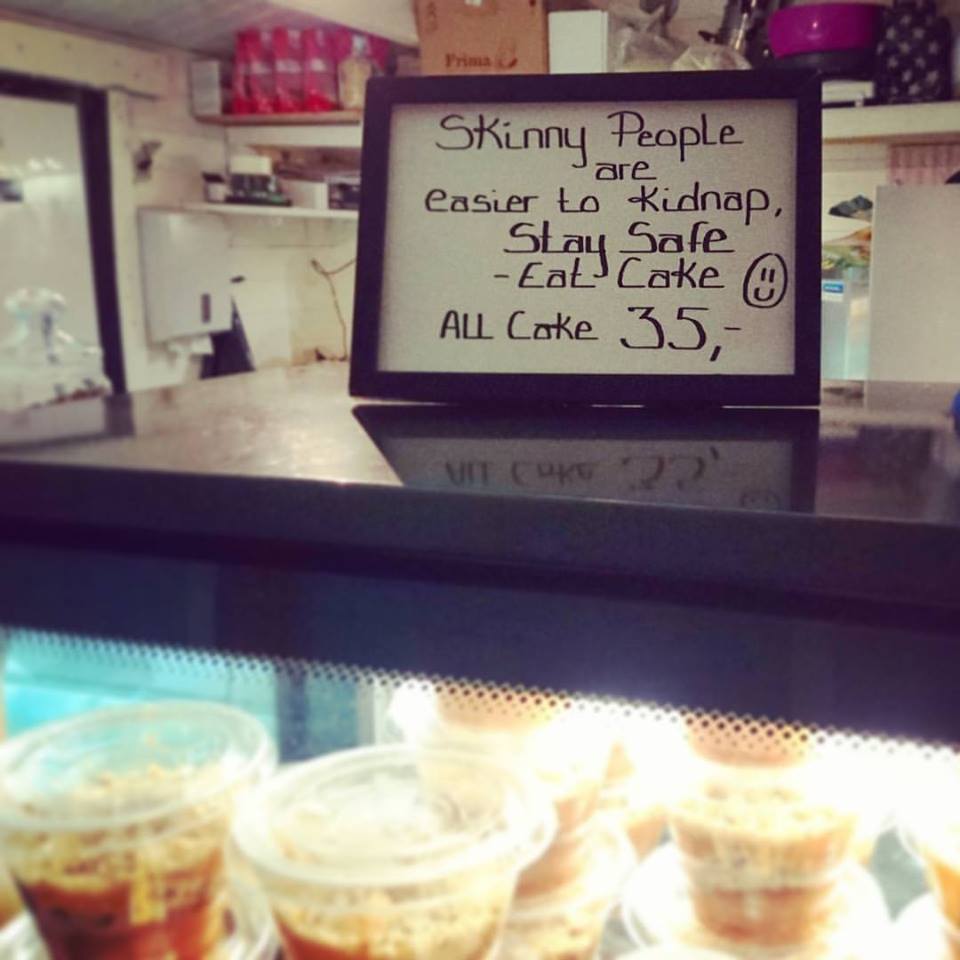 Prima
Skinny People
are
easier to kidnap,
Stay Safe
- Eat Cake
ALL Cake 35,-